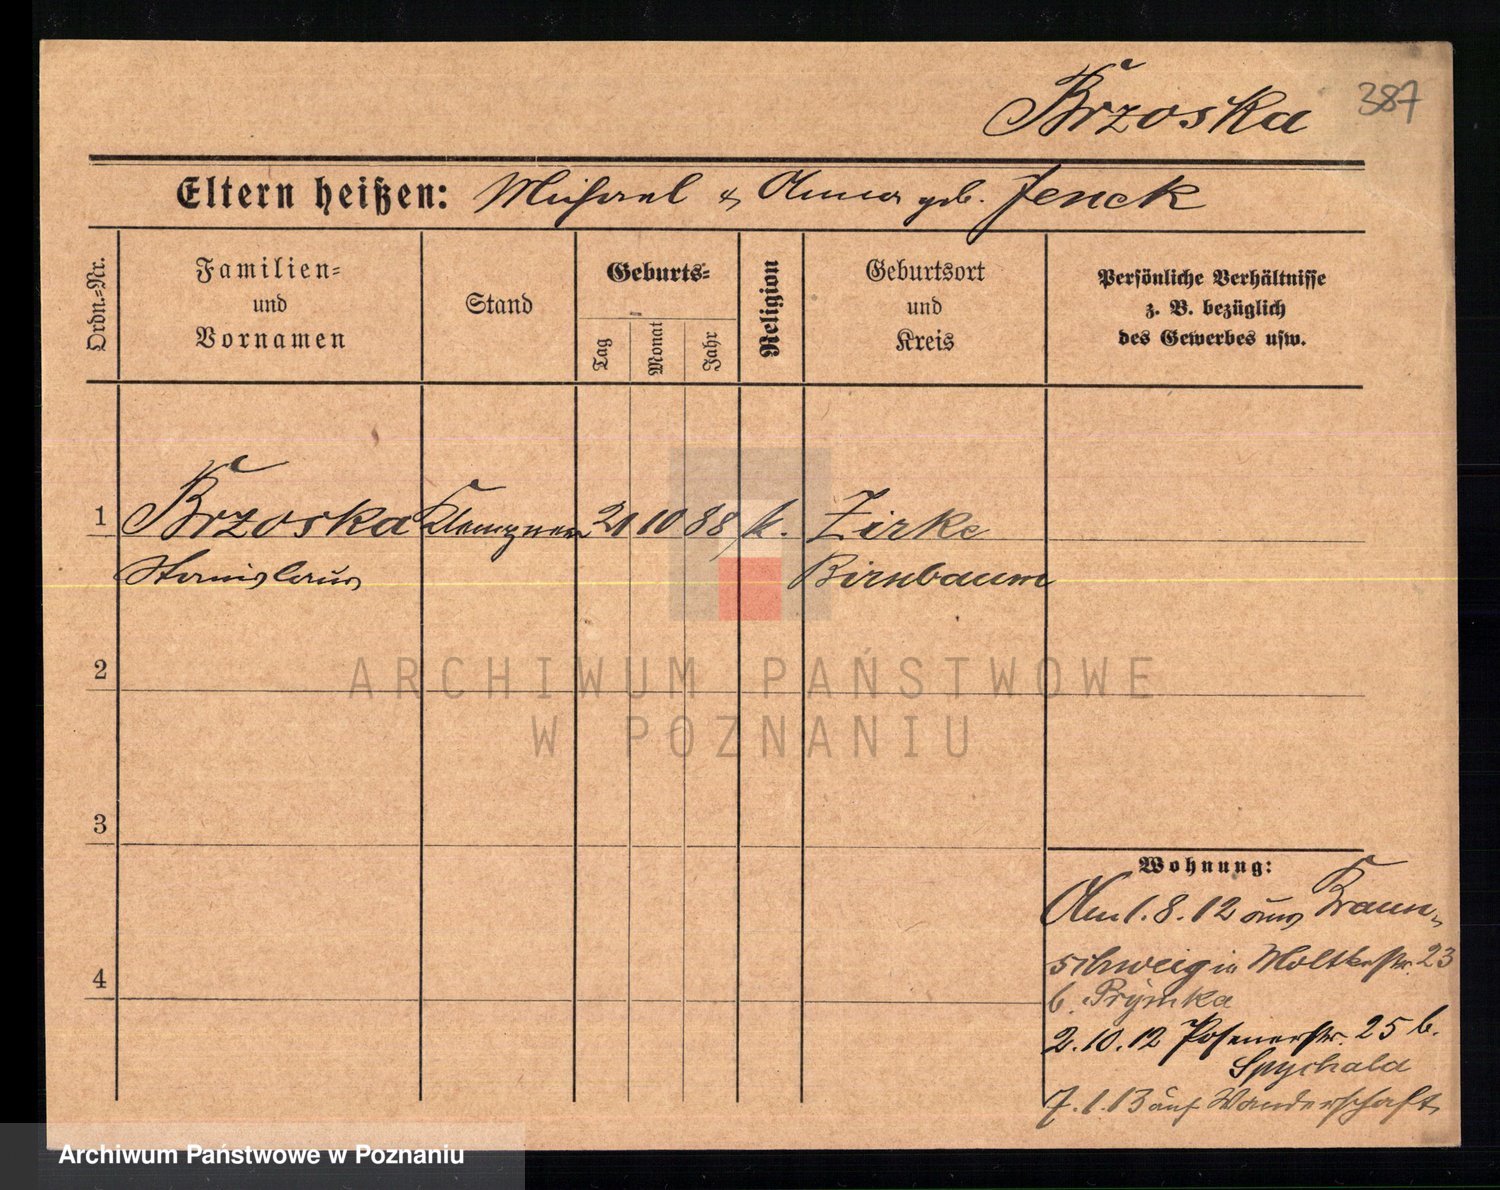 Brzoska 387
Eltern heißen: Michael & Anna geb. Jenek
Ordn.=Nr.
Familien=
und
Vornamen
Stand
Geburts=
Tag
Monat
Jahr
Religion
Geburtsort
und
Kreis
Persönliche Verhältnisse
z. B. bezüglich
des Gewerbes usw.
1 Brzoska Klempner 21 10 88 k. Zirke
Stanislaus Birnbaum
2
ARCHIWUM PAŃSTWOWE
W POZNANIU
3
4
Wohnung:
Am 1.8.12 aus Braun-
schweig in Moltkestr. 23
b. Prymka
2.10.12 Posenerstr. 25 b.
Spychala
7.1.13 auf Wanderschaft
Archiwum Państwowe w Poznaniu